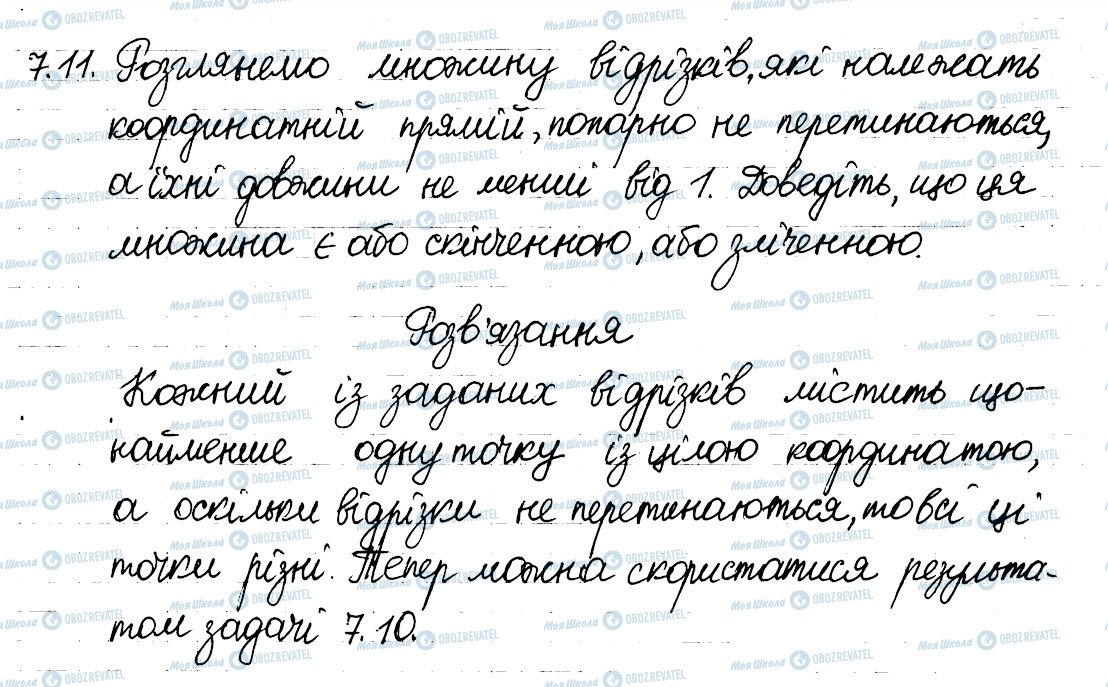 7.11. Розглянемо множину відрізків, які належать
координатній прямій, попарно не перетинаються,
а їхні довжини не менші від 1. Доведіть, що ця
множина є або скінченною, або зліченною.
Розв'язання
Кожний із заданих відрізків містить що-
найменше одну точку із цілою координатою,
а оскільки відрізки не перетинаються, то всі ці
точки різні. Тепер можна скористатися результа-
том задачі 7.10.